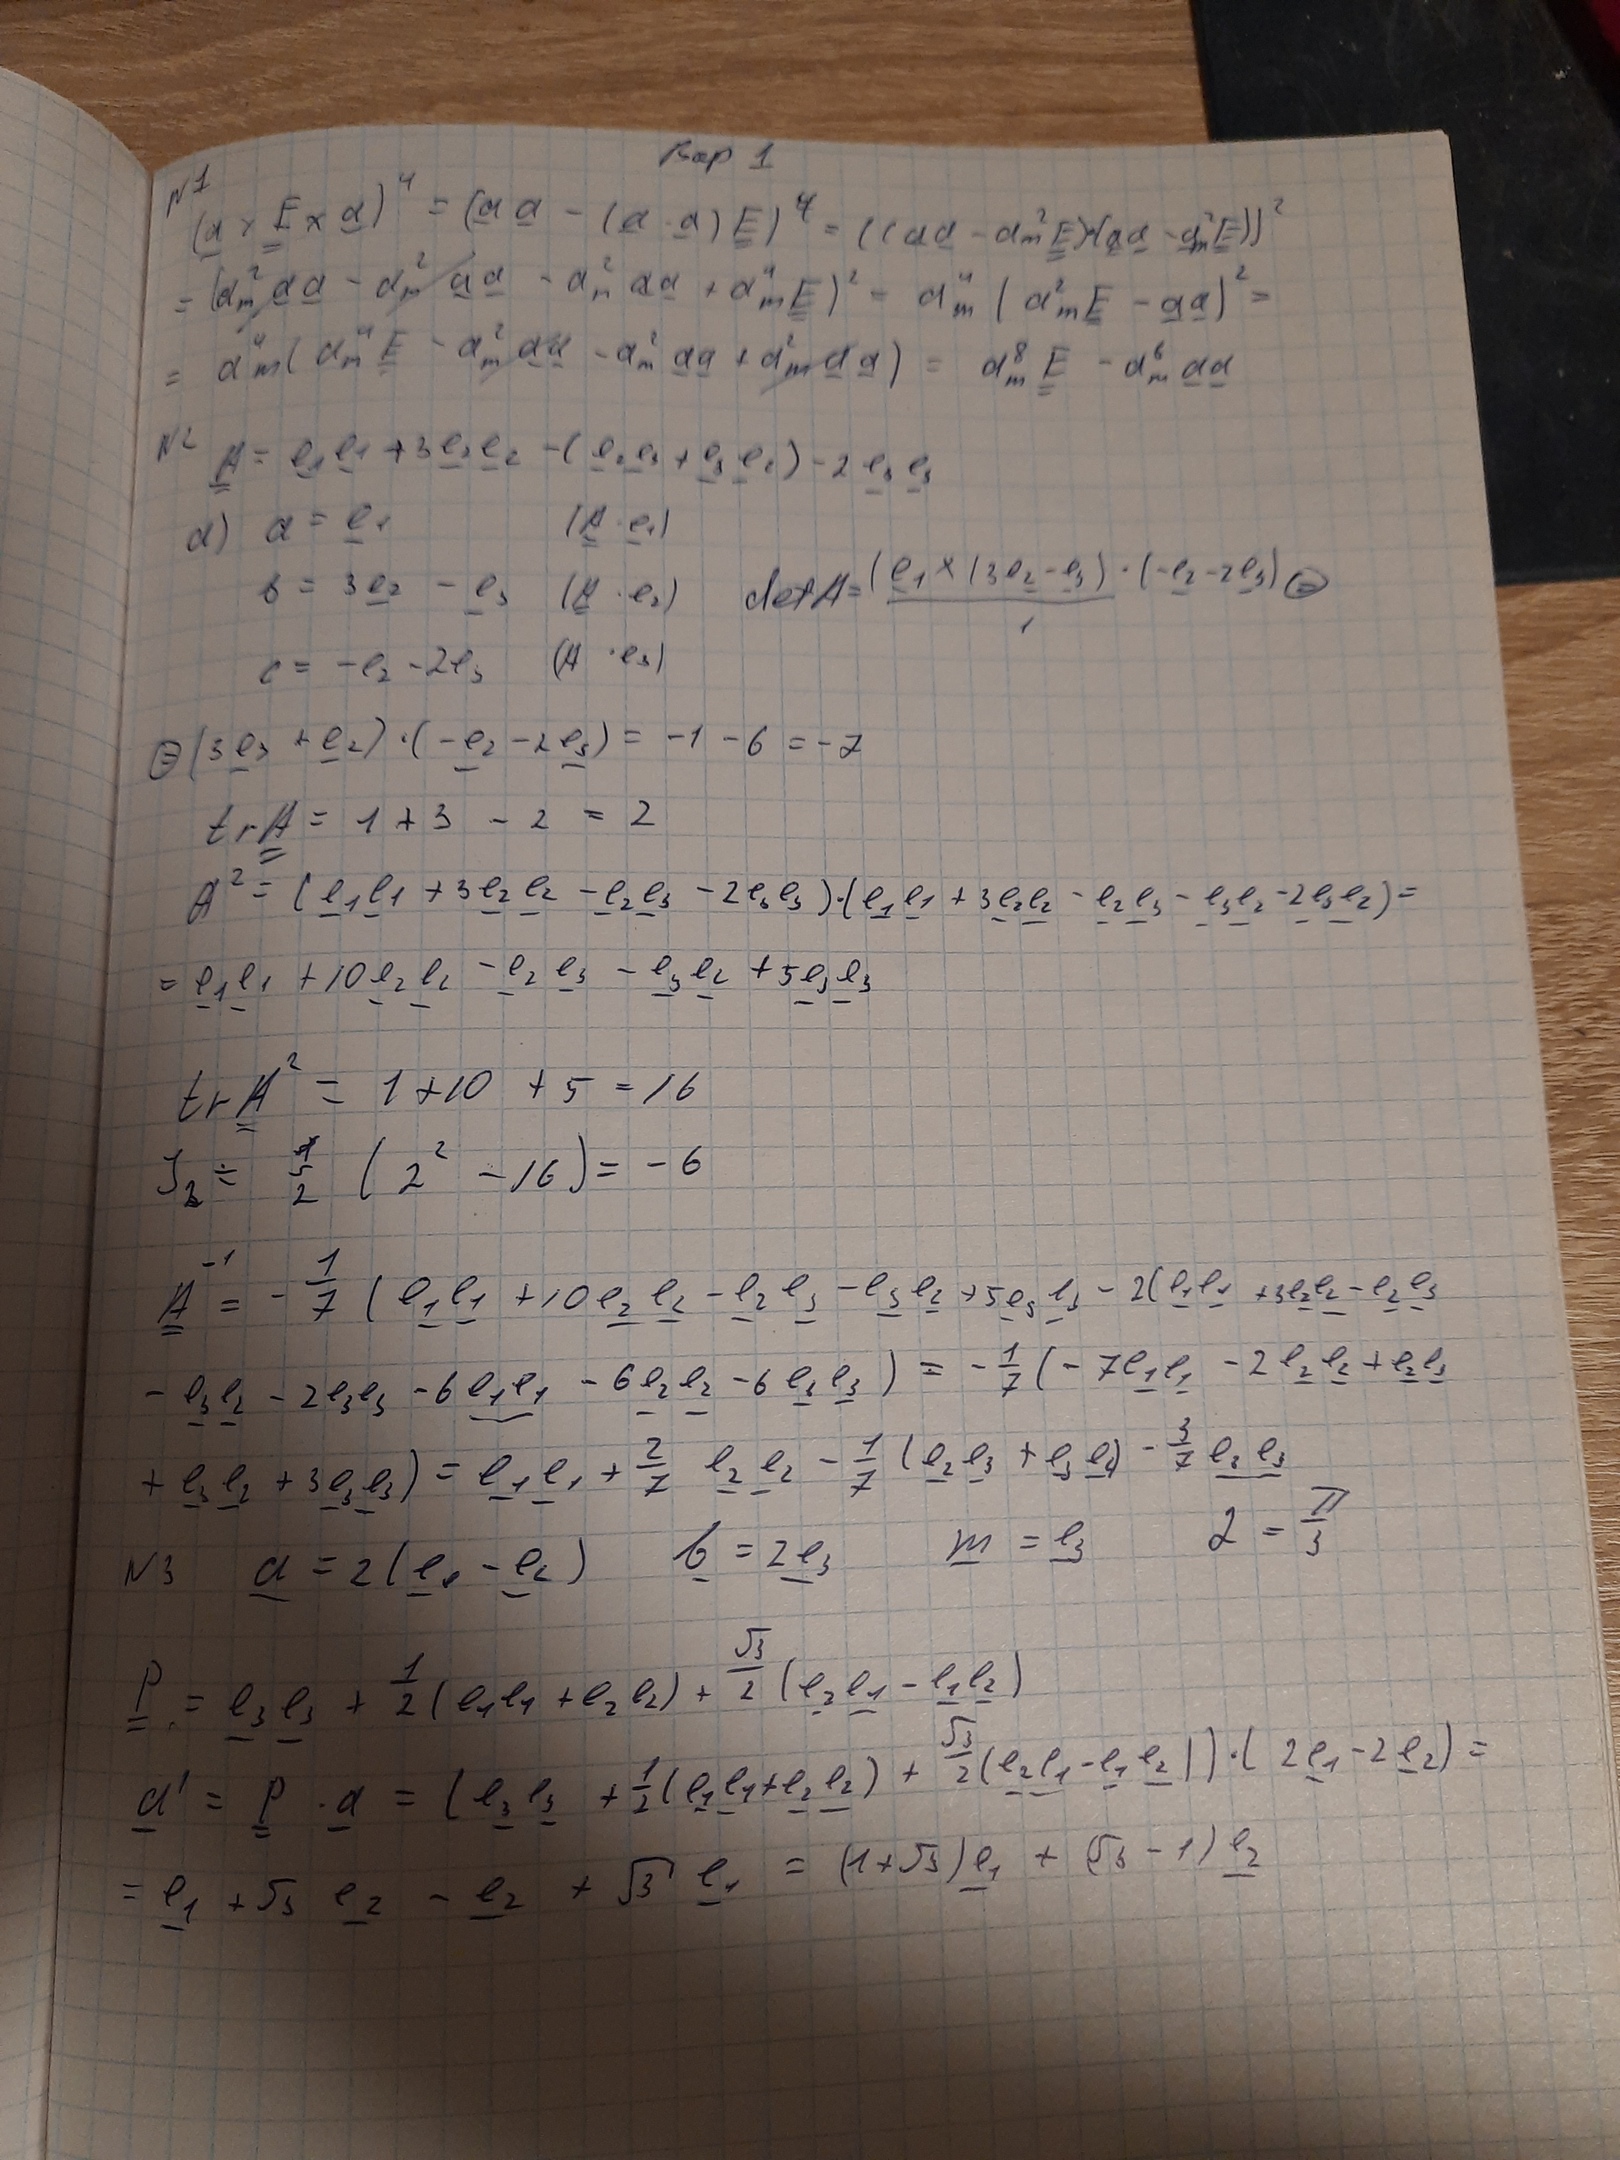 Вар 1
N1
(a × E × a)⁴ = (a a − (a · a) E)⁴ = ((a a − a_m² E)·(a a − a_m² E))²
= (a_m² a a − a_m² a a − a_m² a a + a_m⁴ E)² = a_m⁴ (a_m² E − a a)² =
= a_m⁴ (a_m⁴ E − a_m² a a − a_m² a a + a_m² a a) = a_m⁸ E − a_m⁶ a a
N2 A = e₁e₁ + 3e₂e₂ − (e₂e₃ + e₃e₂) − 2e₃e₃
a) a = e₁ (A · e₁)
b = 3e₂ − e₃ (A · e₂) det A = (e₁ × (3e₂ − e₃) · (−e₂ − 2e₃) / 1 ⊜
c = −e₂ − 2e₃ (A · e₃)
⊜ (3e₃ + e₂) · (−e₂ − 2e₃) = −1 − 6 = −7
tr A = 1 + 3 − 2 = 2
A² = (e₁e₁ + 3e₂e₂ − e₂e₃ − 2e₃e₃)·(e₁e₁ + 3e₂e₂ − e₂e₃ − e₃e₂ − 2e₃e₂) =
= e₁e₁ + 10e₂e₂ − e₂e₃ − e₃e₂ + 5e₃e₃
tr A² = 1 + 10 + 5 = 16
J₂ = 1/2 (2² − 16) = −6
A⁻¹ = −1/7 (e₁e₁ + 10e₂e₂ − e₂e₃ − e₃e₂ + 5e₃e₃ − 2(e₁e₁ + 3e₂e₂ − e₂e₃
− e₃e₂ − 2e₃e₃ − 6e₁e₁ − 6e₂e₂ − 6e₃e₃) = −1/7 (−7e₁e₁ − 2e₂e₂ + e₂e₃
+ e₃e₂ + 3e₃e₃) = e₁e₁ + 2/7 e₂e₂ − 1/7 (e₂e₃ + e₃e₂) − 3/7 e₃e₃
N3 a = 2(e₁ − e₂) b = 2e₃ m = e₃ α = π/3
P = e₃e₃ + 1/2 (e₁e₁ + e₂e₂) + √3/2 (e₂e₁ − e₁e₂)
a' = P · a = (e₃e₃ + 1/2 (e₁e₁ + e₂e₂) + √3/2 (e₂e₁ − e₁e₂)) · (2e₁ − 2e₂) =
= e₁ + √3 e₂ − e₂ + √3 e₁ = (1 + √3) e₁ + (√3 − 1) e₂